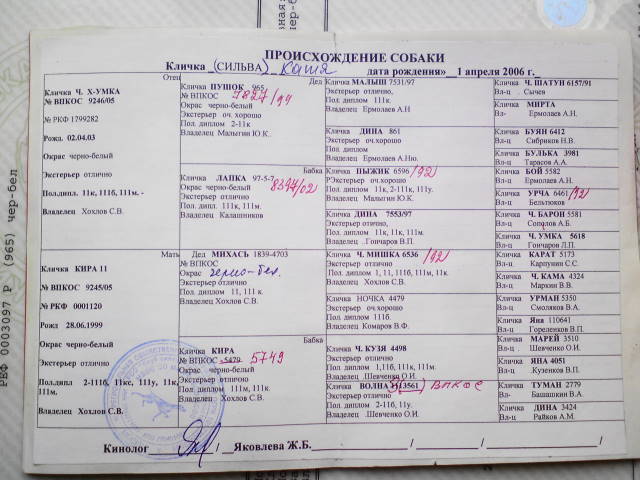 ПРОИСХОЖДЕНИЕ СОБАКИ
Кличка (СИЛЬВА) Катя дата рождения» 1 апреля 2006 г.
Отец
Кличка Ч. Х-УМКА
№ ВПКОС 9246/05
№ РКФ 1799282
Рожд. 02.04.03
Окрас черно-белый
Экстерьер отлично
Пол.дипл. 11к, 111б, 111м. -
Владелец Хохлов С.В.
Мать
Кличка КИРА 11
№ ВПКОС 9245/05
№ РКФ 0001120
Рожд 28.06.1999
Окрас черно-белый
Экстерьер отлично
Пол.дипл 2-111б, 11кс, 111у, 11к, 111м,
Владелец Хохлов С.В.
Дед
Кличка ПУШОК 965
№ ВПКОС 7827/94
Окрас черно-белый
Экстерьер оч.хорошо
Пол. диплом 2-11к
Владелец Малыгин Ю.К.
Бабка
Кличка ЛАПКА 97-5-7
№ ВПКОС 8347/02
Окрас черно-белый
Экстерьер отлично
Пол. дипл. 111к, 111м.
Владелец Калашников
Дед МИХАСЬ 1839-4703
№ ВПКОС
Окрас черно-бел.
Экстерьер отлично
Пол. диплом 11, 111 к.
Владелец Хохлов С.В.
Бабка
Кличка КИРА
№ ВПКОС 5479 5749
Окрас черно-белый
Экстерьер отлично
Пол. диплом 111м, 111к.
Владелец Хохлов С.В.
Кличка МАЛЫШ 7531/97
Экстерьер отлично,
Пол. диплом 111к.
Владелец Ермолаев А.Н
Кличка ДИНА 861
Экстерьер оч.хорошо
Пол диплом
Владелец Ермолаев А.Ню.
Кличка ПЫЖИК 6596 /92
РЭкстерьер оч.хорошо
Пол. диплом 2-11к, 2-11к, 111у.
Владелец Малыгин Ю.К.
Кличка ДИНА 7553/97
Экстерьер отлично
Пол. диплом 11к, 11к, 111м.
Владелец .Гончаров В.П.
Кличка Ч. МИШКА 6536 /92
Экстерьер отлично
Пол диплом 1, 11, 111б, 111к, 111м.
Владелец Хохлов С.В.
Кличка НОЧКА 4479
Экстерьер отлично
Пол. диплом 111б.
Владелец Комаров В.Ф.
Кличка Ч. КУЗЯ 4498
Экстерьер отлично
Пол. диплом 1,11б, 111к, 111м.
Владелец .Шевченко О.И.
Кличка ВОЛНА 3561 ВПКОС
Экстерьер отлично
Пол. диплом 2-11б, 11у.
Владелец .Шевченко О.И
Кличка Ч. ШАТУН 6157/91
Вл-ц . Сычев
Кличка МИРТА
Вл- Ермолаев А.Н.
Кличка БУЯН 6412
Вл-ц Сибриков Н.В.
Кличка БУЛЬКА 3981
Вл-ц Тарасов А.А.
Кличка БОЙ 5582
Вл-ц Ермолаев А.Н.
Кличка УРЧА 6461 /92
Вл-ц Бельтюков
Кличка Ч. БАРОН 5581
Вл-ц Соколов А.Б.
Кличка Ч. УМКА 5618
Вл-ц Гончаров Л.П.
Кличка КАРАТ 5173
Вл-ц Карпунин С.С.
Кличка Ч. КАМА 4324
Вл-ц Маркин В.В.
Кличка УРМАН 5350
Вл-ц Смоляков В.А.
Кличка Яна 110641
Вл-ц Гореленков В.П.
Кличка МАРЕЙ 3510
Вл-ц Шевченко О.И.
Кличка ЯНА 4051
Вл-ц .Кузенков В.П.
Кличка ТУМАН 2779
Вл- Башашкин В.А.
Кличка ДИНА 3424
Вл-ц Райков А.М.
Кинолог / Яковлева Ж.Б. / /
РКФ 0003097 Р (965) чер-бел